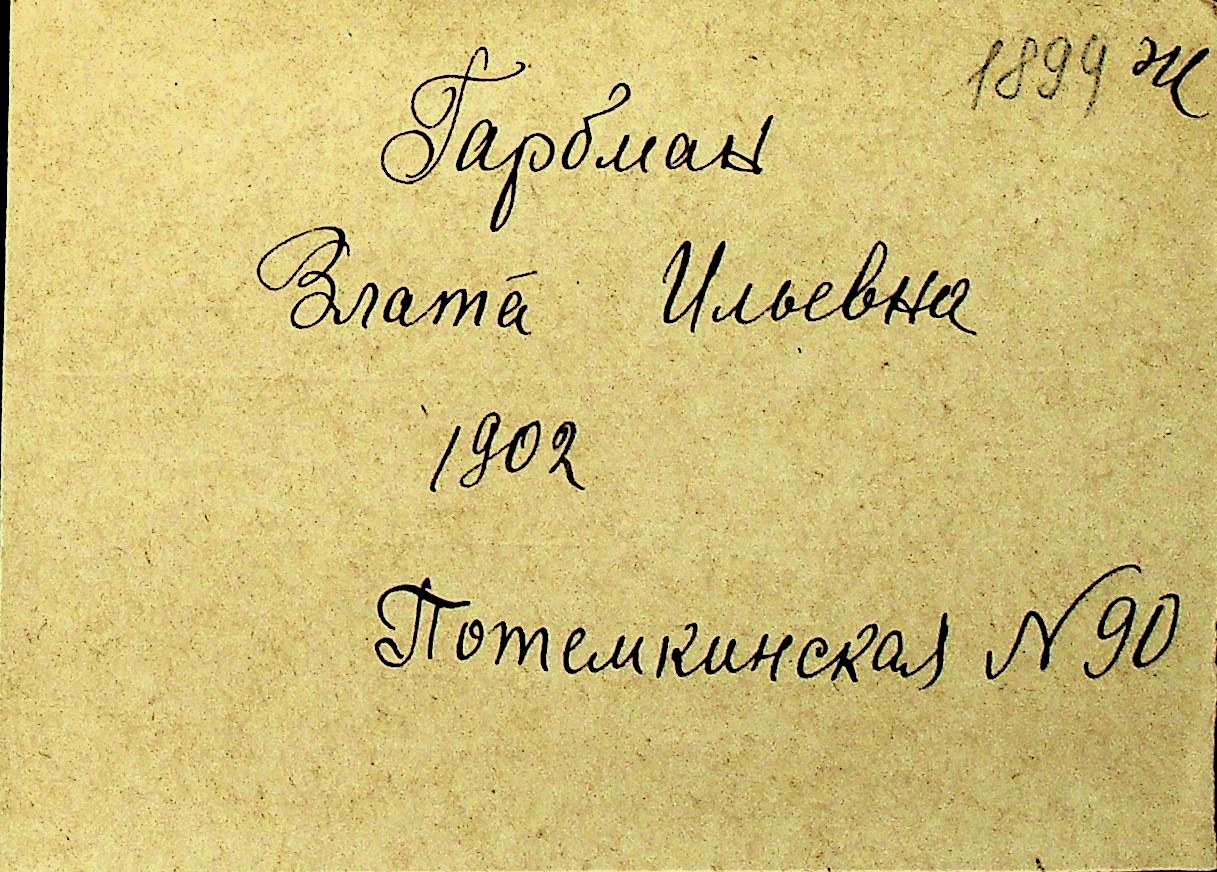 1899 ж
Гарбман
Злата Ильевна
1902
Потемкинская N 90